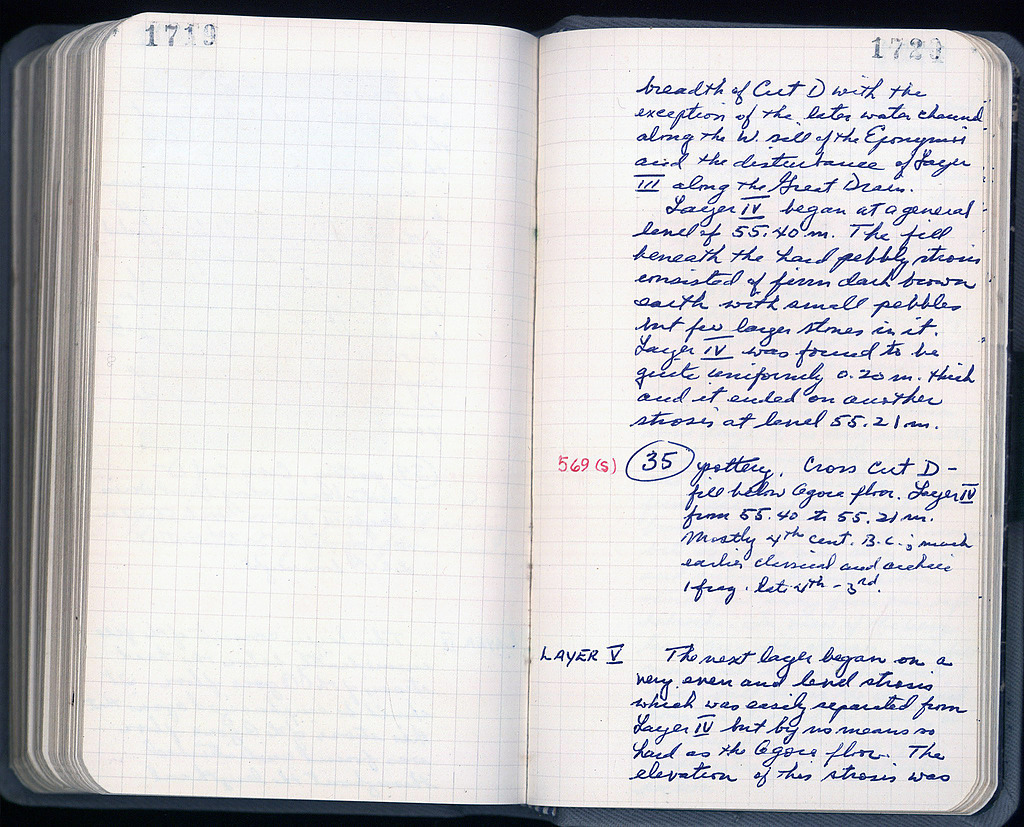 1719
1720
breadth of Cut D with the
exception of the later water channel
along the W. sill of the Eponymoi
and the disturbance of Layer
III along the Great Drain.
Layer IV began at a general
level of 55.40 m. The fill
beneath the hard pebbly strosis
consisted of firm dark brown
earth with small pebbles
but few larger stones in it.
Layer IV was found to be
quite uniformly 0.20 m. thick
and it ended on another
strosis at level 55.21 m.
569 (s) 35 pottery. Cross Cut D -
fill below Agora floor. Layer IV
from 55.40 to 55.21 m.
Mostly 4th cent. B.C.; much
earlier classical and archaic
1 frag. late 4th - 3rd.
LAYER V The next layer began on a
very even and level strosis
which was easily separated from
Layer IV but by no means so
hard as the Agora floor. The
elevation of this strosis was